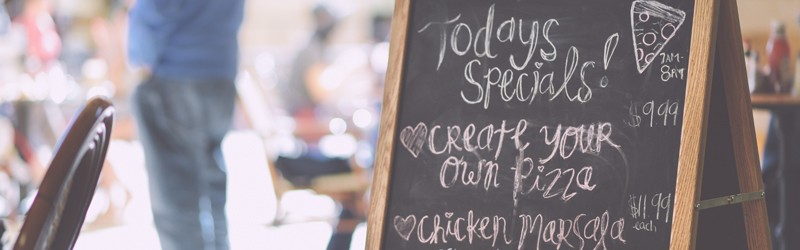 Todays
Specials!
7AM-
8PM
$9.99
CREATE YOUR
OWN Pizza
$11.99
each
Chicken MARSALA